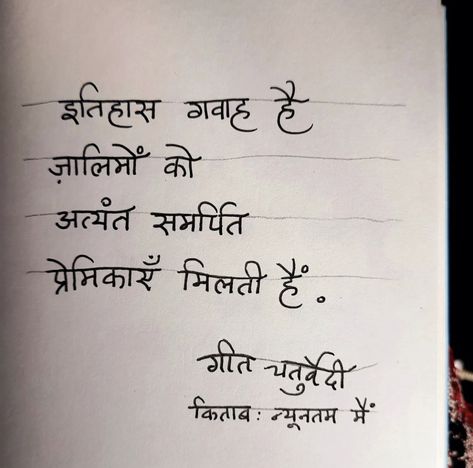 इतिहास गवाह है
ज़ालिमों को
अत्यंत समर्पित
प्रेमिकाएँ मिलती हैं.
गीत चतुर्वेदी
किताब: न्यूनतम मैं